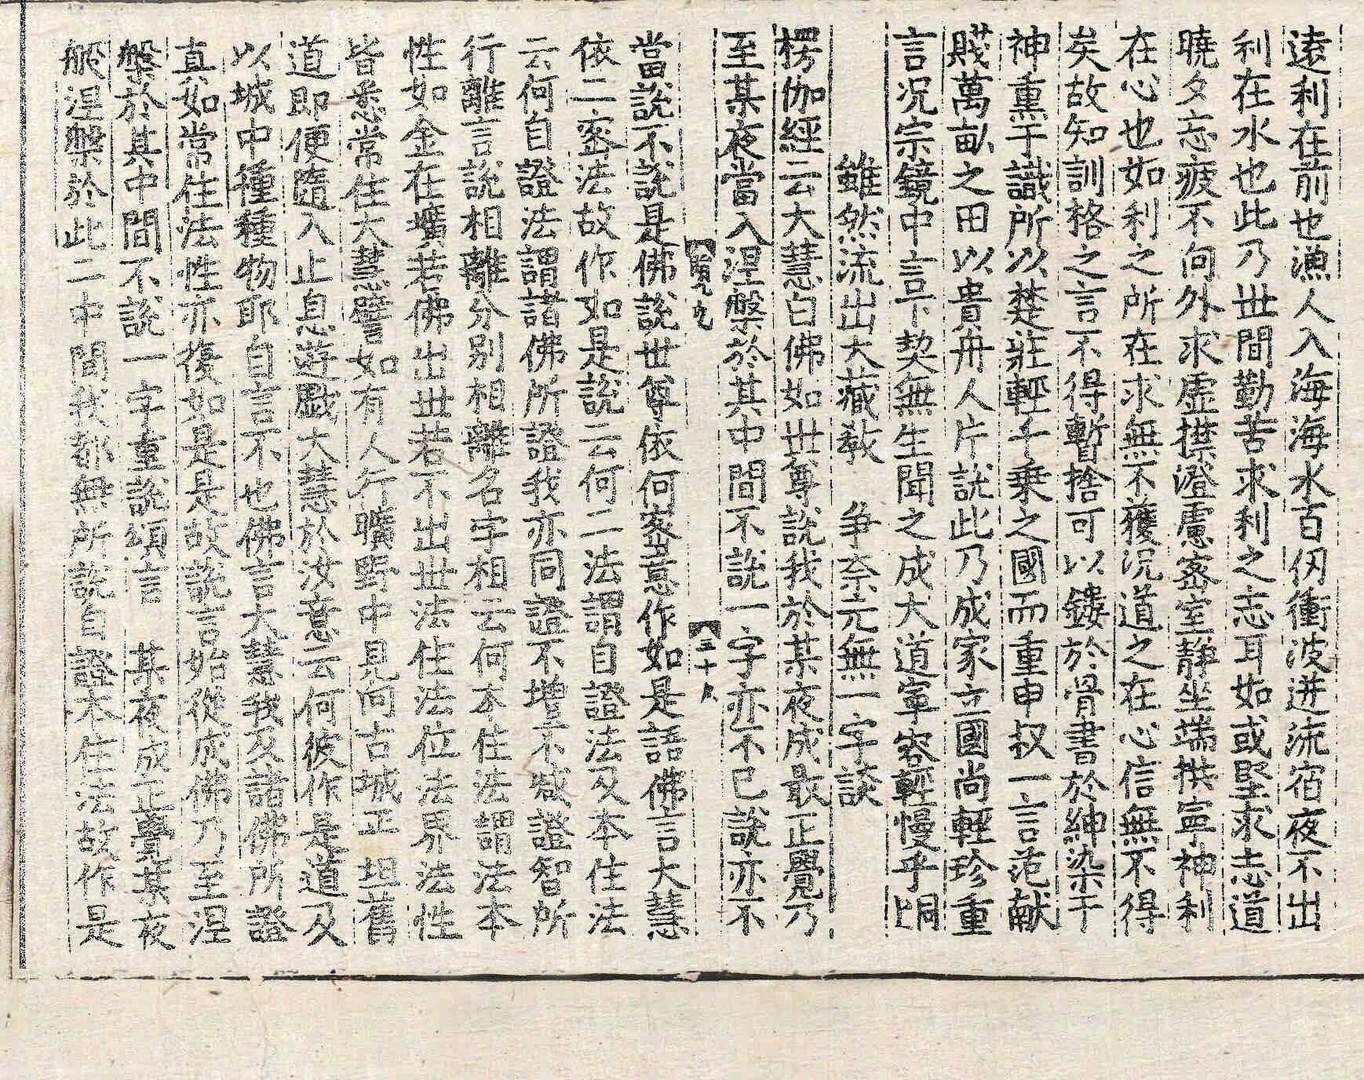 遠利在前也漁人入海海水百仞衝波逆流宿夜不出
利在水也此乃世間勤苦求利之志耳如或堅求志道
曉夕忘疲不向外求虛襟澄慮密室靜坐端拱寧神利
在心也如利之所在求無不獲況道之在心信無不得
矣故知訓格之言不得暫捨可以鏤於骨書於紳染于
神熏于識所以楚莊輕千乘之國而重申叔一言范献
賤萬畝之田以貴舟人片說此乃成家立國尚輕珍重
言況宗鏡中言下契無生聞之成大道寧容輕慢乎
雖然流出大藏敎 争奈元無一字談
楞伽經云大慧白佛如世尊說我於某夜成最正覺乃
至某夜當入涅槃於其中間不說一字亦不已說亦不
三十
當說不說是佛說世尊依何密意作如是語佛言大慧
依二密法故作如是說云何二法謂自證法及本住法
云何自證法謂諸佛所證我亦同證不增不減證智所
行離言說相離分別相離名字相云何本住法謂法本
性如金在壙若佛出世若不出世法住法位法界法性
皆悉常住大慧譬如有人行曠野中見向古城正坦舊
道即便隨入止息遊戲大慧於汝意云何彼作是道及
以城中種種物耶自言不也佛言大慧我及諸佛所證
真如常住法性亦復如是是故說言始從成佛乃至涅
槃於其中間不說一字重說頌言 某夜成正覺某夜
般涅槃於此二中間我都無所說自證本住法故作是